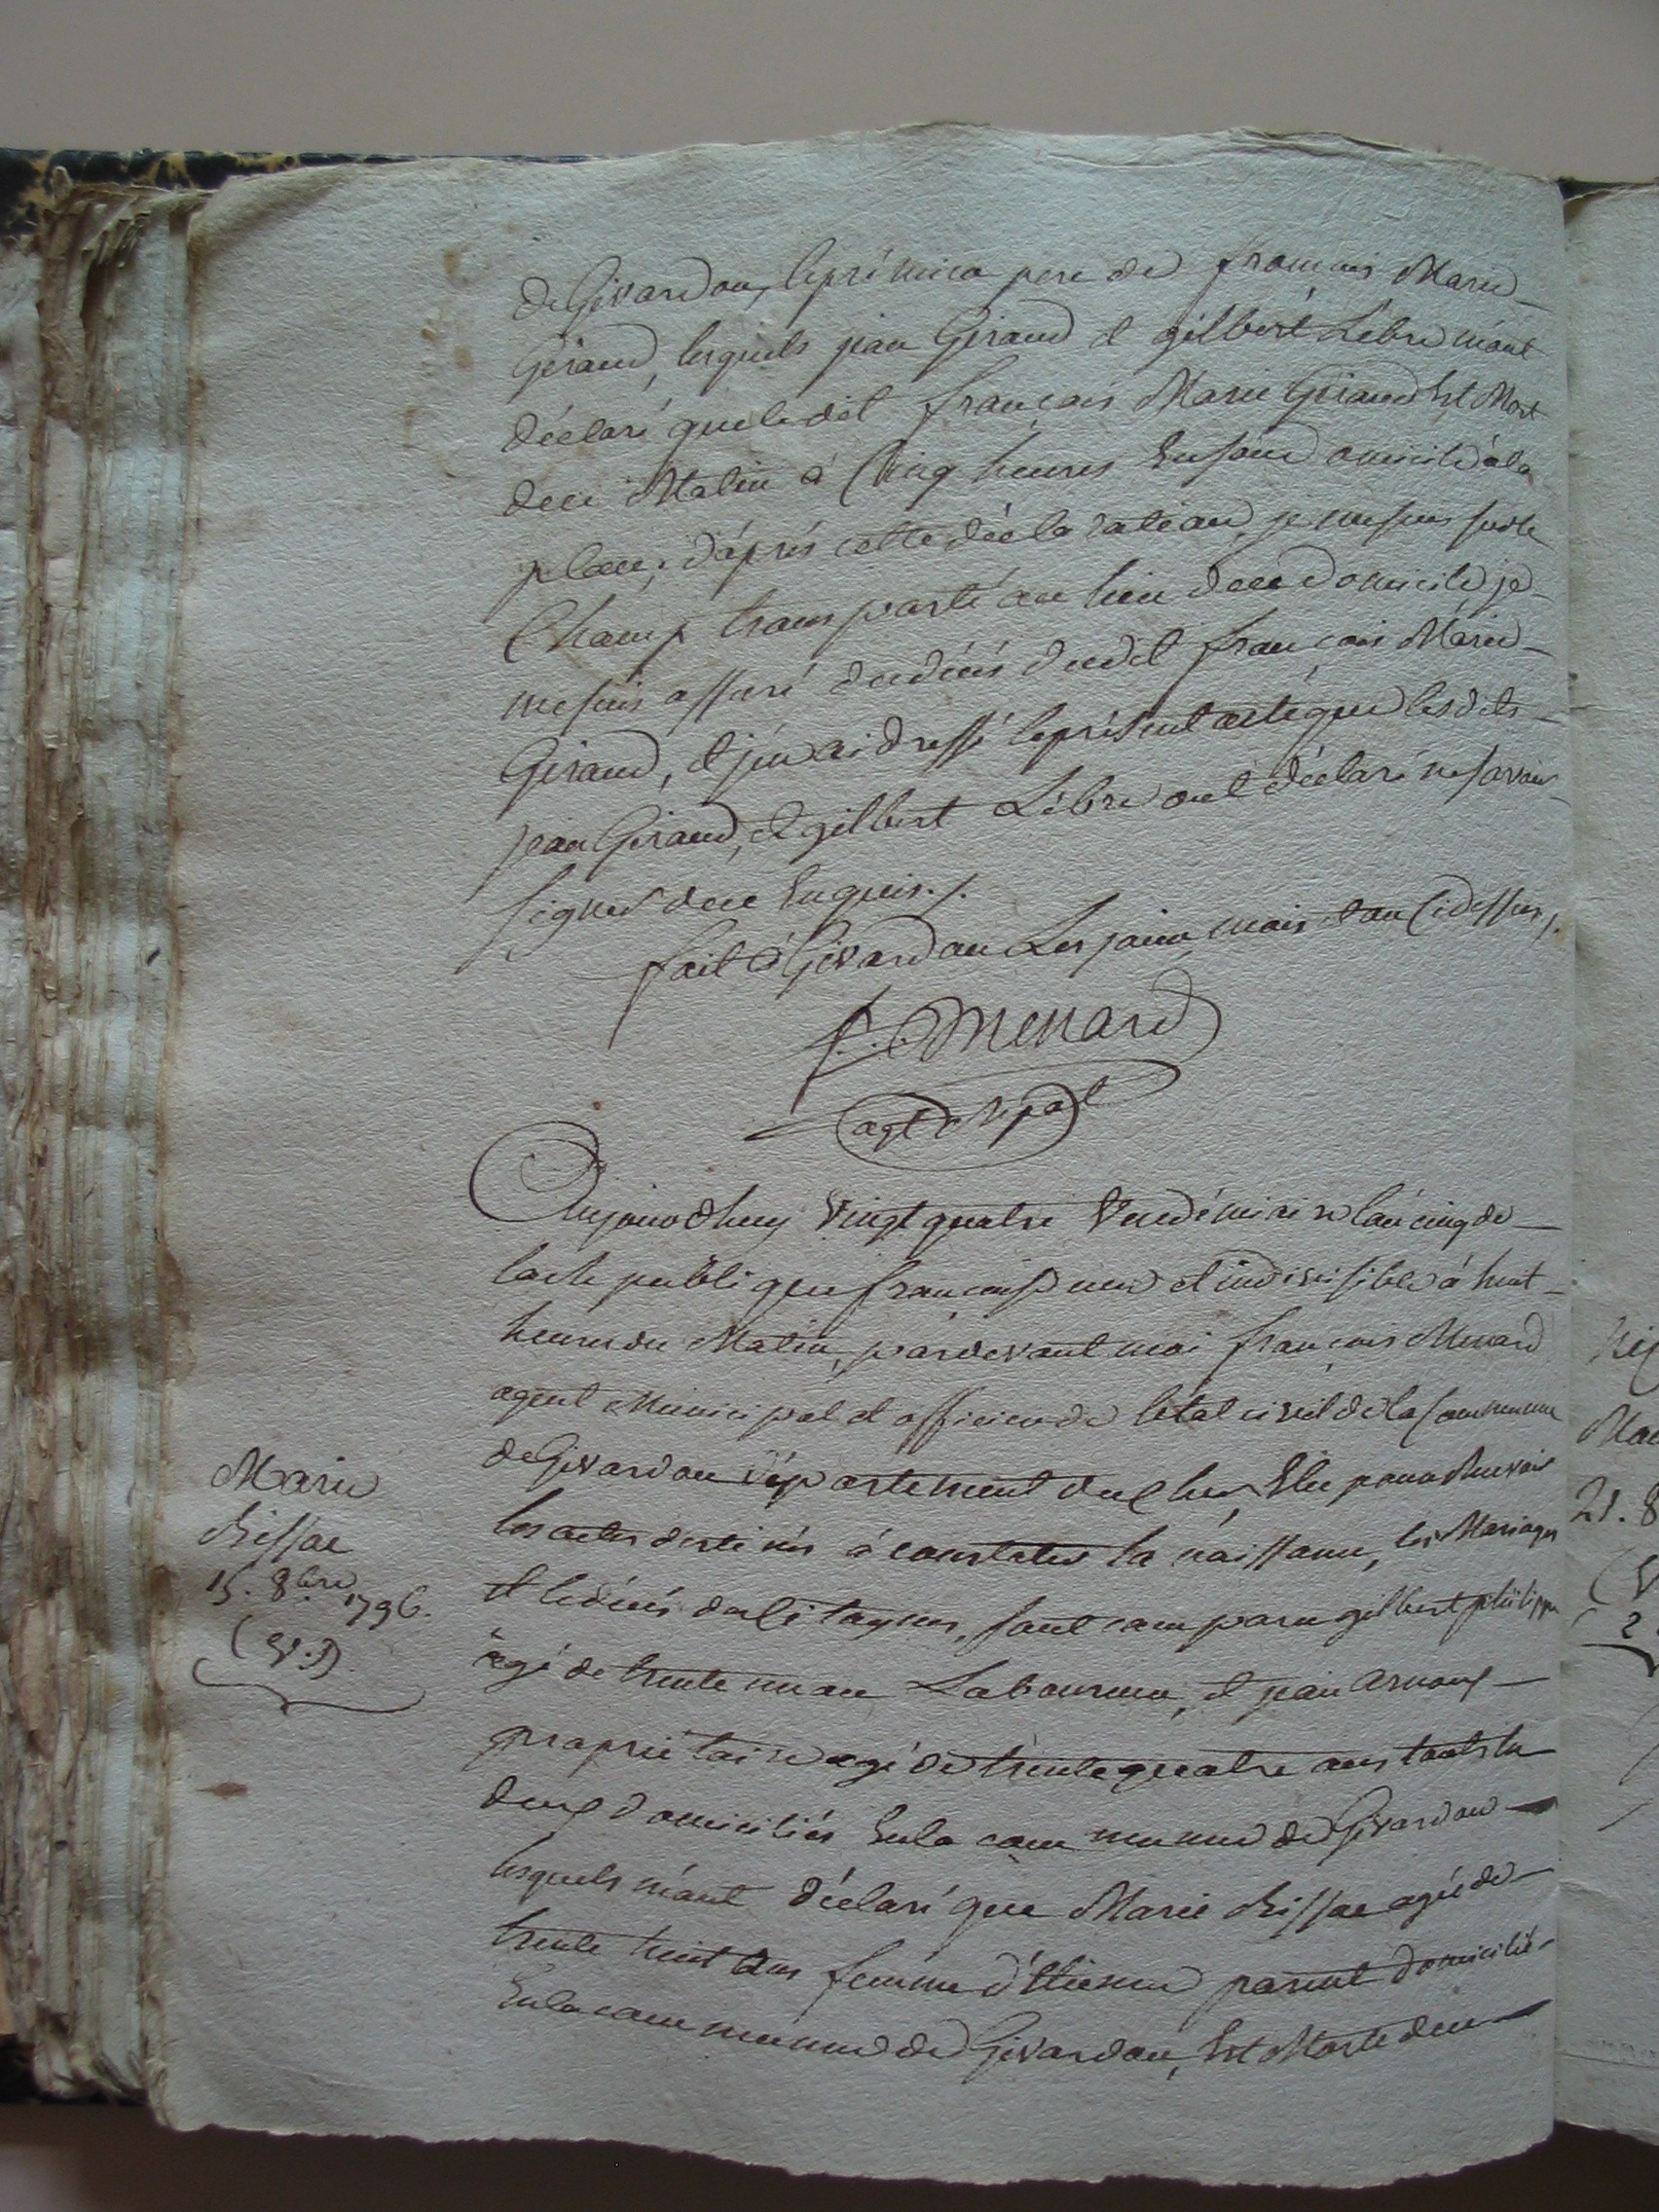 de Givardon, le prémier pere de francois Marie
Géraud, lesquels jean Géraud et gilbert Lebre m'ont
déclaré que ledit français Marie Géraud Est Mort
de ce Matin à Cinq heures En son domicile à la
place; d'après cette déclaration, je me suis sur le
Champ transporté au lieu de ce domicile je
me suis assuré du décès dudit français Marie
Géraud, et j'en ai dressé le présent acte que lesdits
jean Géraud, et gilbert Lébre ont déclaré ne savoir
signer de ce Enquis./.
fait à Givardon Les jour, mois et an Cidessus /.
f. Menard
agt Mpal
Aujourdhuy Vingt quatre Vendémiaire l'an cinq de
la république francaise une et indivisible à huit
heures du Matin, pardevant moi francois Menard
agent Municipal et officier de l'état civil de la Commune
de Givardon département du Cher Elu pour Recevoir
les actes destinés à constater la naissance, les Mariages
et le décés des Citoyens, sont comparu gilbert philippe
agé de trente un an Laboureur, et jean arnoux
propriétaire agé de trente quatre ans touts les
deux domiciliés En la commune de Givardon
lesquels m'ont déclaré que Marie Bissac agée de
trente huit ans femme d'Etienne parent domicilié
En la commune de Givardon, Est Morte de ce
Marie
Bissac
15. 8bre 1796.
(V.S)
Mar
21. 8